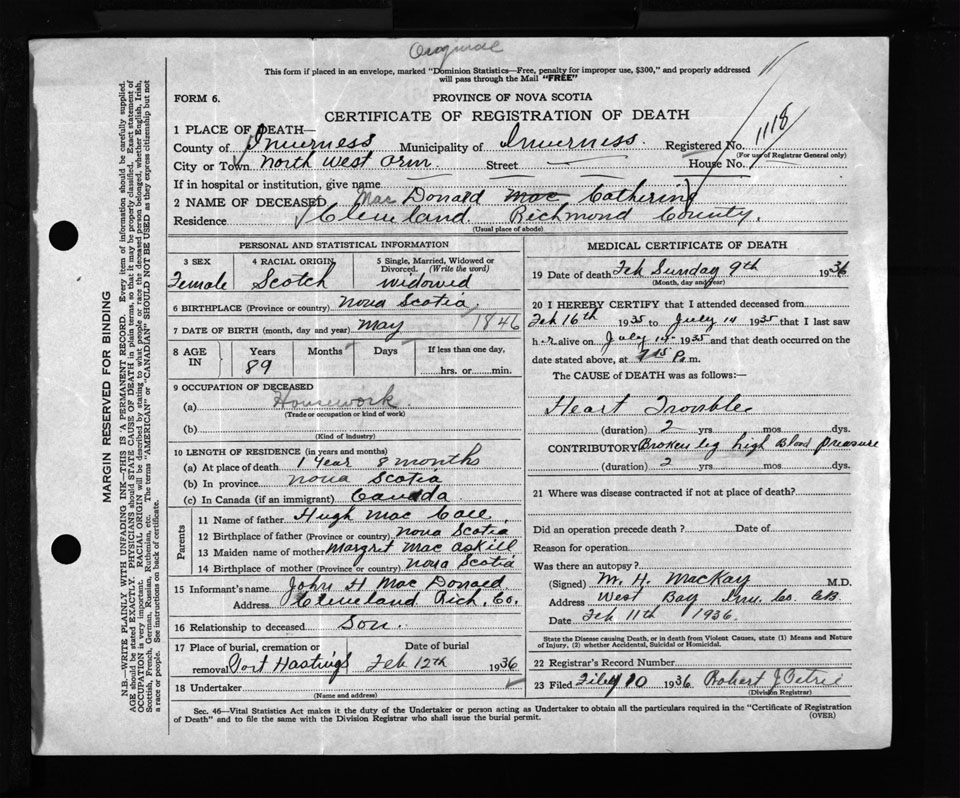 Original
This form if placed in an envelope, marked "Dominion Statistics—Free, penalty for improper use, $300," and properly addressed
will pass through the Mail "FREE"
FORM 6.
PROVINCE OF NOVA SCOTIA
CERTIFICATE OF REGISTRATION OF DEATH
1 PLACE OF DEATH—
County of Inverness Municipality of Inverness. Registered No. 1118
(For use of Registrar General only)
City or Town North West Arm Street House No.
If in hospital or institution, give name
2 NAME OF DECEASED Mac Donald Mac Catherine
Residence Cleveland Richmond County.
(Usual place of abode)
PERSONAL AND STATISTICAL INFORMATION
3 SEX Female
4 RACIAL ORIGIN Scotch
5 Single, Married, Widowed or Divorced. (Write the word) widowed
6 BIRTHPLACE (Province or country) Nova Scotia
7 DATE OF BIRTH (month, day and year) May 1846
8 AGE IN Years 89 Months Days If less than one day, hrs. or min.
9 OCCUPATION OF DECEASED
(a) Housework
(Trade or occupation or kind of work)
(b)
(Kind of industry)
10 LENGTH OF RESIDENCE (in years and months)
(a) At place of death 1 year 8 months
(b) In province Nova Scotia
(c) In Canada (if an immigrant) Canada
Parents
11 Name of father Hugh Mac Call
12 Birthplace of father (Province or country) Nova Scotia
13 Maiden name of mother Margret Mac Askill
14 Birthplace of mother (Province or country) Nova Scotia
15 Informant's name John H Mac Donald
Address Cleveland Rich. Co.
16 Relationship to deceased Son.
17 Place of burial, cremation or removal Port Hastings Date of burial Feb 12th 1936
18 Undertaker
(Name and address)
MEDICAL CERTIFICATE OF DEATH
19 Date of death Feb Sunday 9th 1936
(Month, day and year)
20 I HEREBY CERTIFY that I attended deceased from
Feb 16th 1935 to July 14 1935 that I last saw
her alive on July 14 1935 and that death occurred on the
date stated above, at P. m.
The CAUSE OF DEATH was as follows:—
Heart Trouble
(duration) 2 yrs. mos. dys.
CONTRIBUTORY Broken leg high Blood preasure
(duration) 2 yrs. mos. dys.
21 Where was disease contracted if not at place of death?
Did an operation precede death? Date of
Reason for operation
Was there an autopsy?
(Signed) M. H. MacKay M.D.
Address West Bay Inv. Co. CB
Date Feb 11th 1936.
State the Disease causing Death, or in death from Violent Causes, state (1) Means and Nature
of Injury, (2) whether Accidental, Suicidal or Homicidal.
22 Registrar's Record Number
23 Filed 10 1936 Robert J Petrie
(Division Registrar)
Sec. 46—Vital Statistics Act makes it the duty of the Undertaker or person acting as Undertaker to obtain all the particulars required in the "Certificate of Registration
of Death" and to file the same with the Division Registrar who shall issue the burial permit.
(OVER)
MARGIN RESERVED FOR BINDING
N.B.—WRITE PLAINLY WITH UNFADING INK—THIS IS A PERMANENT RECORD. Every item of information should be carefully supplied.
AGE should be stated EXACTLY. PHYSICIANS should STATE CAUSE OF DEATH in plain terms, so that it may be properly classified. Exact statement of
OCCUPATION is very important. RACIAL ORIGIN will be described by stating to what people or race the deceased person belonged, whether English, Irish,
Scottish, French, German, Russian, Ruthenian, etc. The terms "AMERICAN" or "CANADIAN" SHOULD NOT BE USED as they express citizenship but not
a race or people. See instructions on back of certificate.